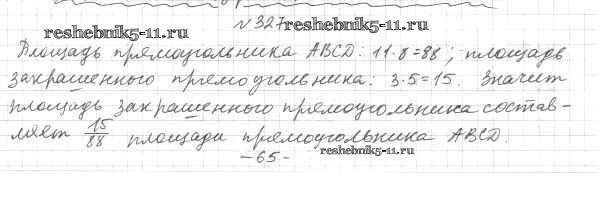 № 327 reshebnik5-11.ru
reshebnik5-11.ru
Площадь прямоугольника ABCD: 11·8=88; площадь
закрашенного прямоугольника: 3·5=15. Значит
площадь закрашенного прямоугольника состав-
ляет 15/88 площади прямоугольника ABCD.
reshebnik5-11.ru
-65-